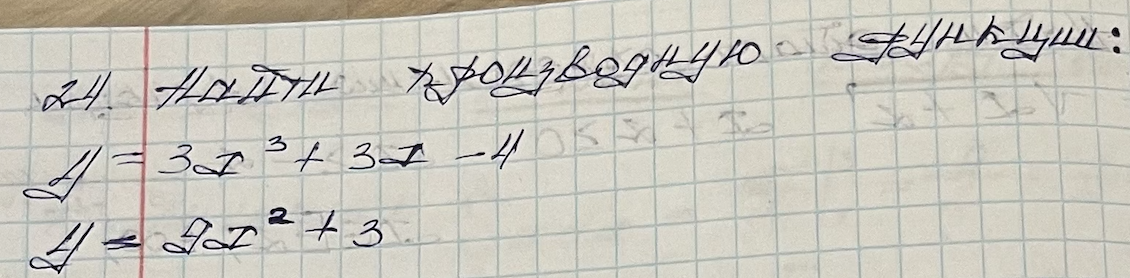 24. Найти производную функции:
y = 3x³ + 3x - 4
y = 9x² + 3